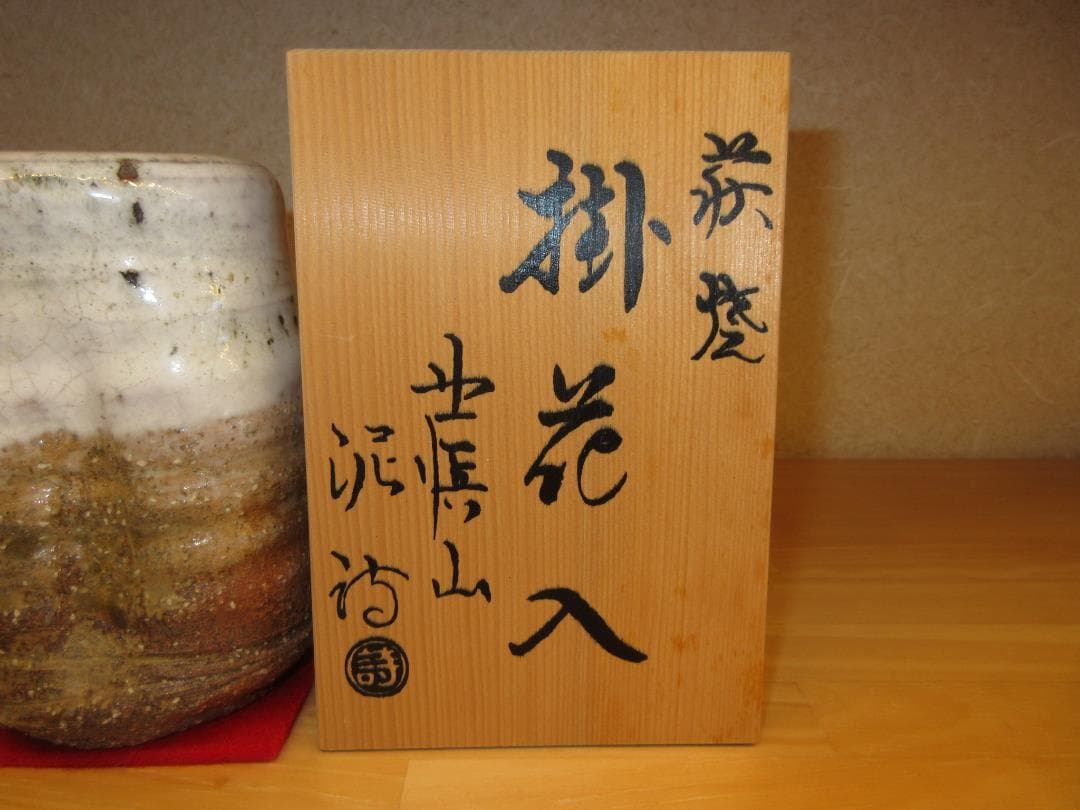 萩焼
掛花入
山
泥詩